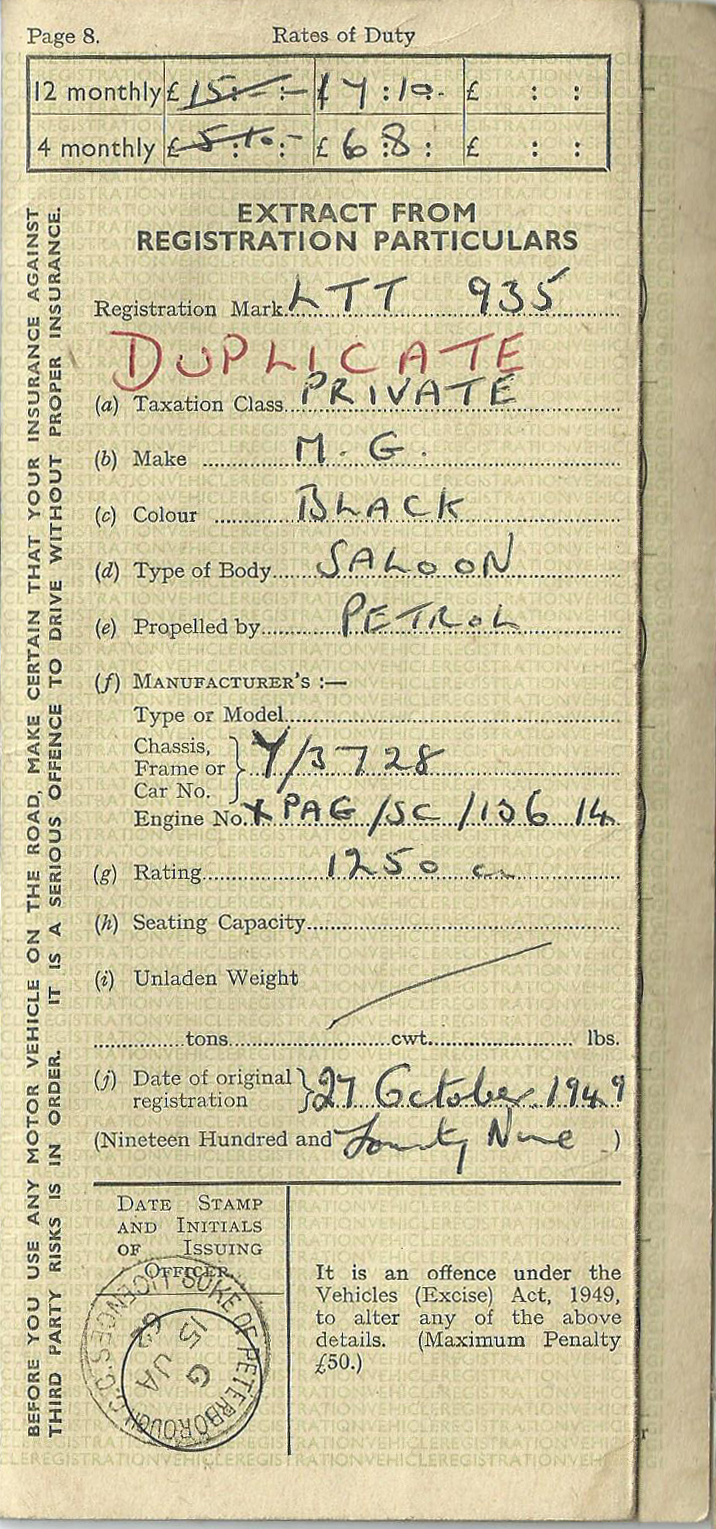 Page 8. Rates of Duty
12 monthly £ 15:-:- £ 17:10:- £ : :
4 monthly £ 5:10:- £ 6:8: £ : :
EXTRACT FROM
REGISTRATION PARTICULARS
Registration Mark LTT 935
DUPLICATE
(a) Taxation Class PRIVATE
(b) Make M.G.
(c) Colour BLACK
(d) Type of Body SALOON
(e) Propelled by PETROL
(f) MANUFACTURER'S :—
Type or Model
Chassis,
Frame or } Y/3728
Car No.
Engine No. XPAG/SC/13614
(g) Rating 1250 cc
(h) Seating Capacity
(i) Unladen Weight
tons cwt. lbs.
(j) Date of original } 27 October 1949
registration
(Nineteen Hundred and Fourty Nine )
DATE STAMP
AND INITIALS
OF ISSUING
OFFICER
SOKE OF PETERBOROUGH C.C. LICENCES
G
15 JA
It is an offence under the
Vehicles (Excise) Act, 1949,
to alter any of the above
details. (Maximum Penalty
£50.)
BEFORE YOU USE ANY MOTOR VEHICLE ON THE ROAD, MAKE CERTAIN THAT YOUR INSURANCE AGAINST
THIRD PARTY RISKS IS IN ORDER. IT IS A SERIOUS OFFENCE TO DRIVE WITHOUT PROPER INSURANCE.